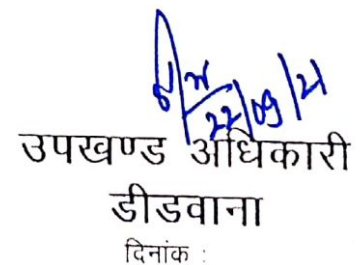 22/09/21
उपखण्ड अधिकारी
डीडवाना
दिनांक :